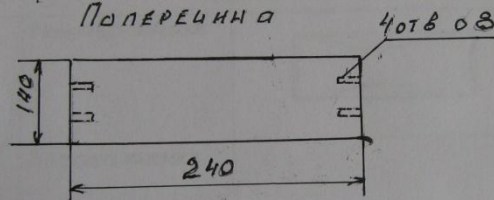 Поперечина
4 отв ⌀8
140
240